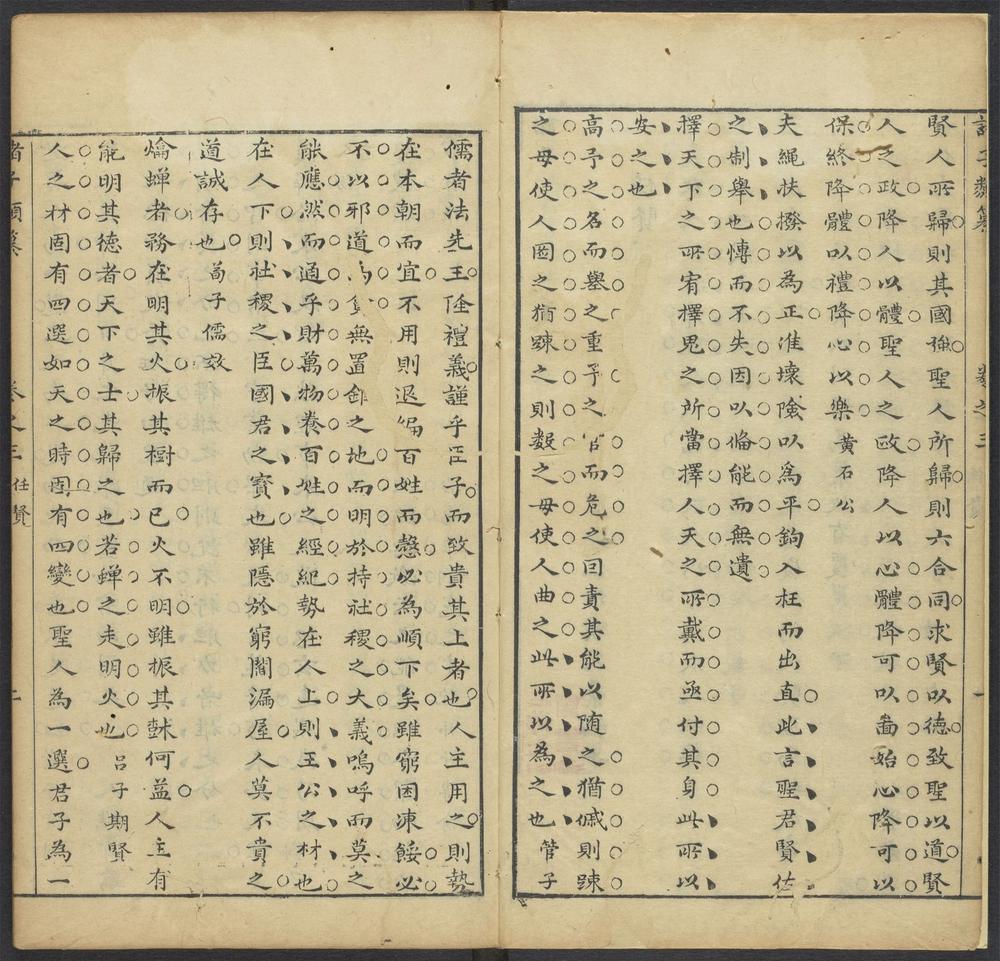 諸子類纂 卷之三 一
賢人所歸則其國強聖人所歸則六合同求賢以德致聖以道賢
人之政降人以體聖人之政降人以心體降可以啚始心降可以
保終降體以禮降心以樂 黄石公
夫繩扶撥以為正准壞險以為平鈎入枉而出直此言聖君賢佐
之制舉也慱而不失因以俻能而無遺
擇天下之所宥擇鬼之所當擇人天之所戴而亟付其身此所以
安之也
高予之名而舉之重予之官而危之曰責其能以随之猶傶則踈
之毋使人圂之猶踈之則數之毋使人曲之此所以為之也 管子
儒者法先王隆禮義謹乎臣子而致貴其上者也人主用之則勢
在本朝而宜不用則退編百姓而慤必為順下矣雖窮困凍餒必
不以邪道為貪無置錐之地而明於持社稷之大義嗚呼而莫之
能應然而通乎財萬物養百姓之經紀勢在人上則王公之材也
在人下則社稷之臣國君之寳也雖隱於窮閻漏屋人莫不貴之
道誠存也 荀子儒效
爚蟬者務在明其火振其樹而已火不明雖振其樹何益人主有
能明其德者天下之士其歸之也若蟬之走明火也 吕子期賢
人之材固有四選如天之時固有四變也聖人為一選君子為一
諸子類纂 卷之三 任賢 二